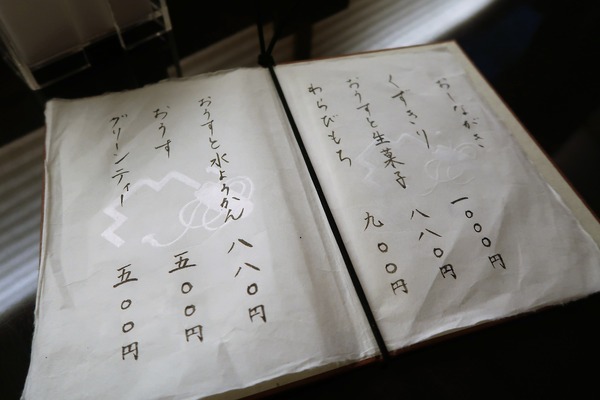 おしながき
くずきり 一〇〇〇円
おうすと生菓子 八八〇円
わらびもち 九〇〇円
おうすと水ようかん 八八〇円
おうす 五〇〇円
グリーンティー 五〇〇円